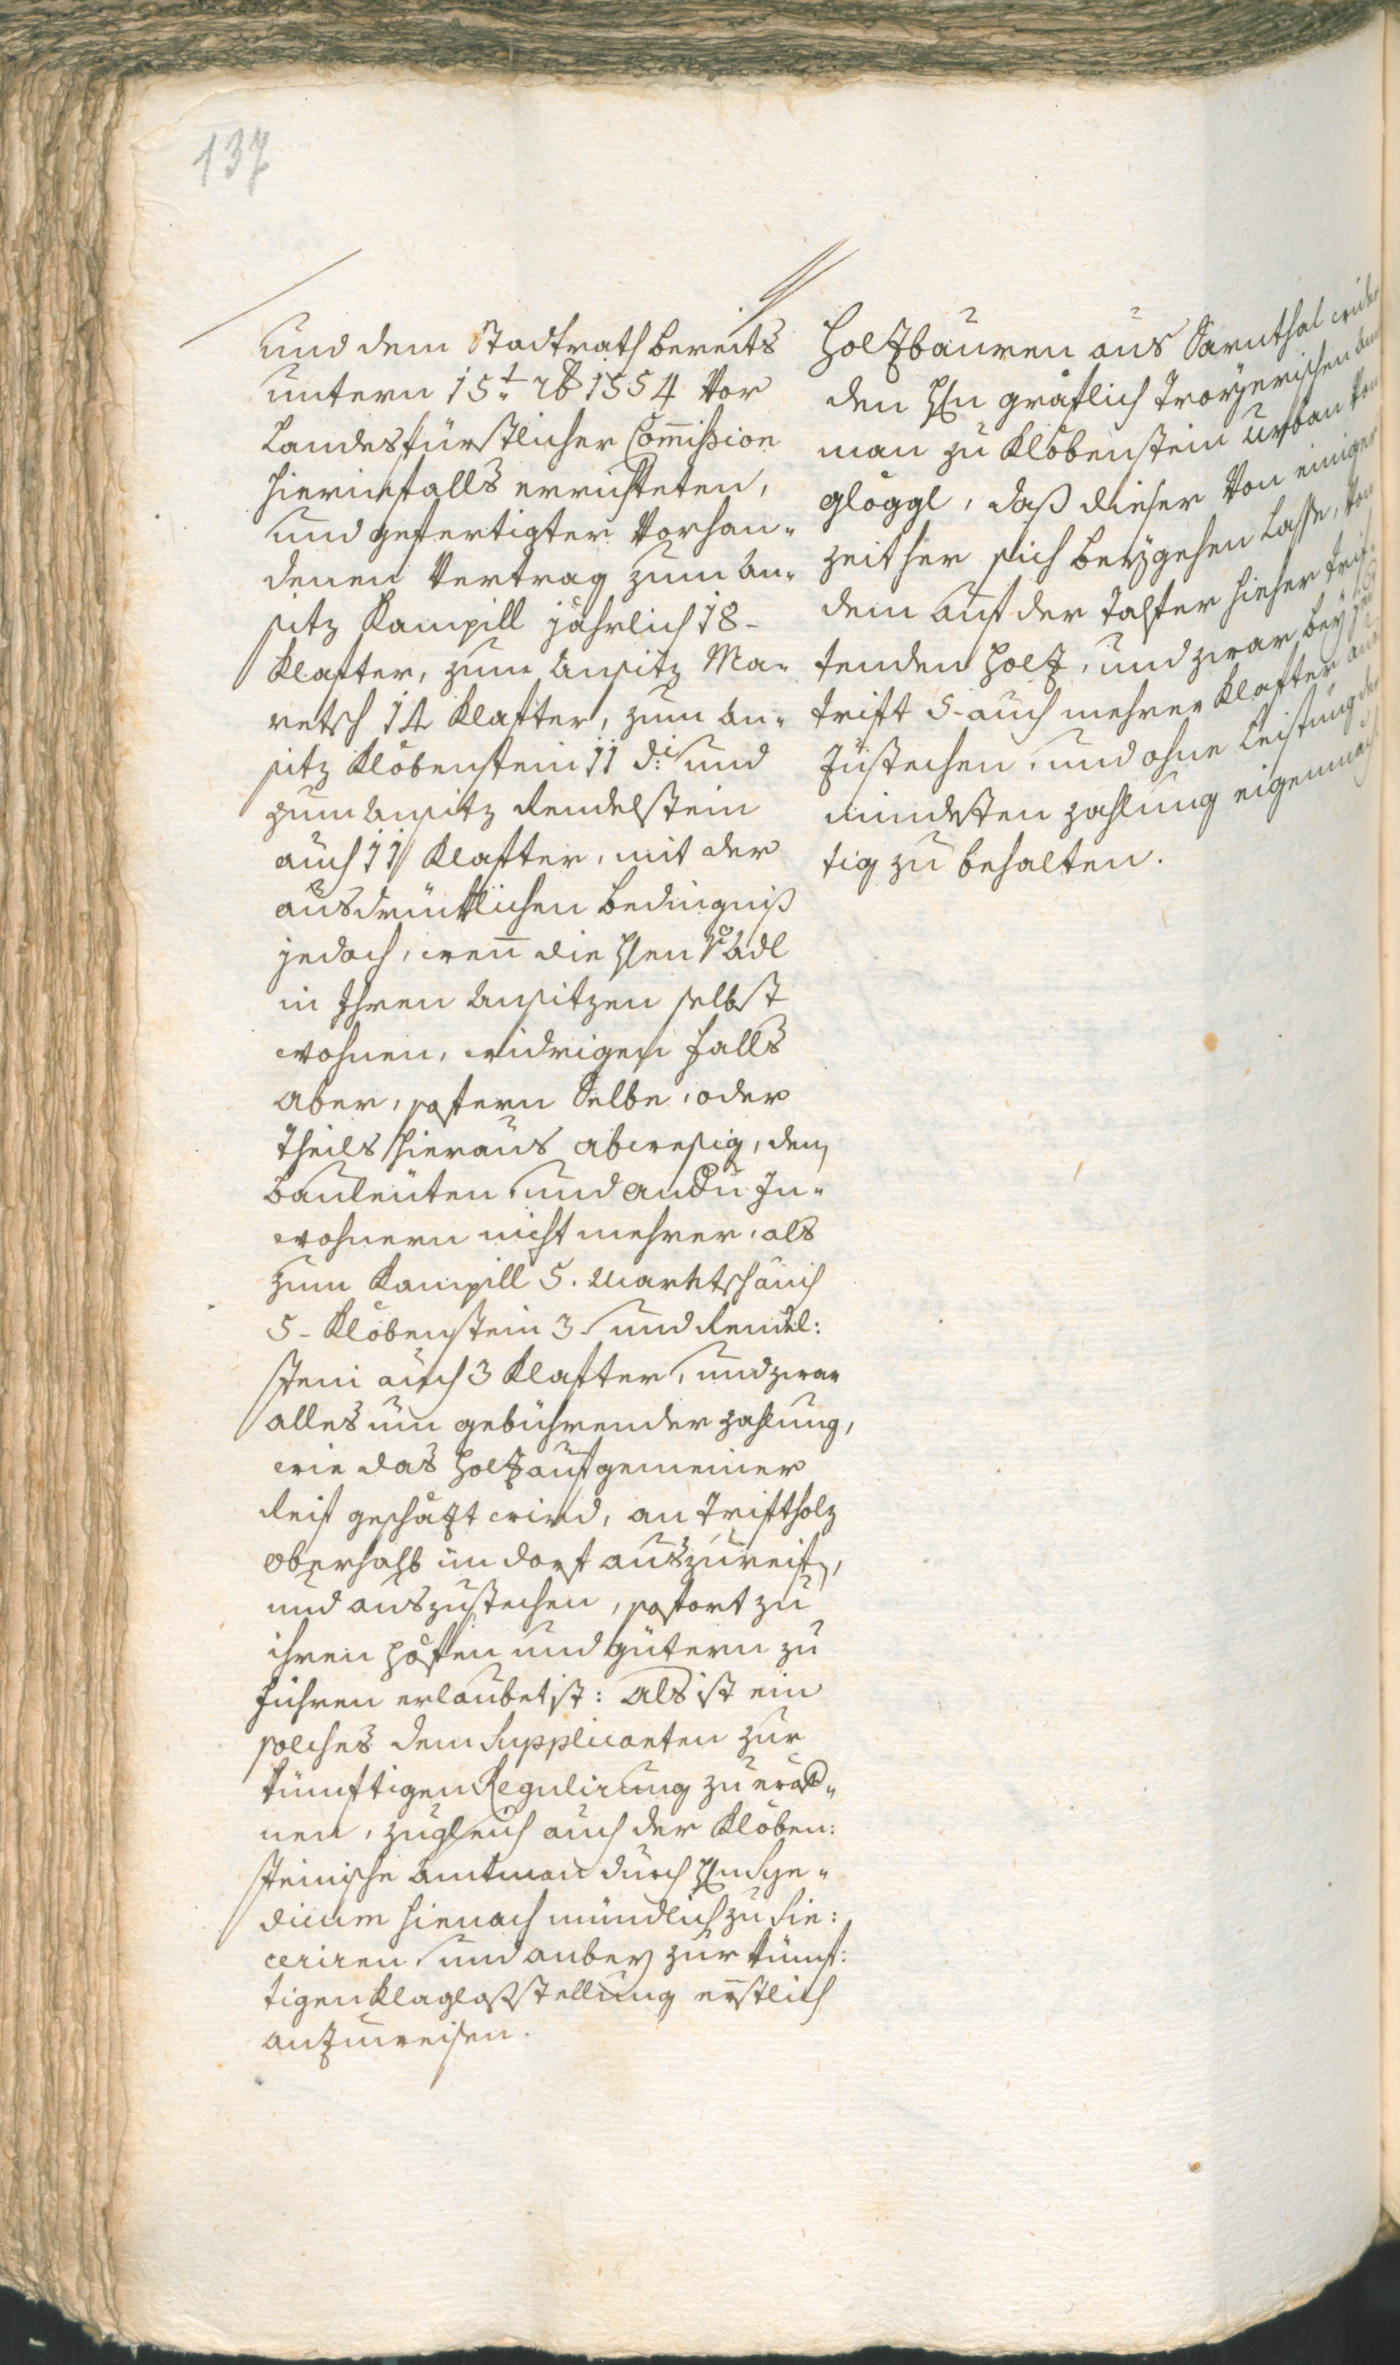 137
und dem Stadtrath bereits
untern 15.t xb 1554 vor
Landesfürstlicher Commission
hierinfalls errichteten,
und gefertigter vorhan¬
denen Vertrag zum An¬
sitz Kampill jährlich 18-
Klafter, zum Ansitz Ma¬
retsch 14 Klafter, zum An¬
sitz Klobenstein 11 d: und
zum Ansitz Rendelstein
auch 11 Klafter, mit der
ausdrüklichen bedingniß
jedoch, wenn die H\en v Adl
in Ihren Ansitzen selbst
wohnen, widrigen falls
aber, sofern Selbe, oder
Theils hieraus abwesig, den
Bauleuten und andern In¬
wohnern nicht mehrer, als
zum Kampill 5. Maretsch auch
5- Klobenstein 3- und Rendel:
stein auch 3 Klafter, und zwar
alles um gebührender zahlung,
wie das Holz auf gemeiner
Reif geschäzt wird, an Triftholz
oberhalb im dorf auszureifen,
und auszustechen, sofort zu
ihren höfen und gütern zu
führen erlaubet ist: Als ist ein
solches dem Supplicanten zur
künftigen Regulirung zu eröf¬
nen, zugleich auch der Kloben:
steinische Amtman durch H\n Syn¬
dicum hienach mündlich zu Sin:
ceriren und anbey zur künf:
tigen Klagloßstellung ernstlich
anzuweisen.
Holzbauren aus Sarnthal wider
den H\n gräflich Troyerischen Amt
man zu Klobenstein Urban von
Glöggl, daß dieser von einiger
zeit her sich beygehen Lasse, von
dem auf der Talfer hieher trif¬
tenden Holz, und zwar bey jeder
Trift 5- auch mehrer Klafter aus
zustechen, und ohne Leistung der
mindesten zahlung eigenmäch
tig zu behalten.